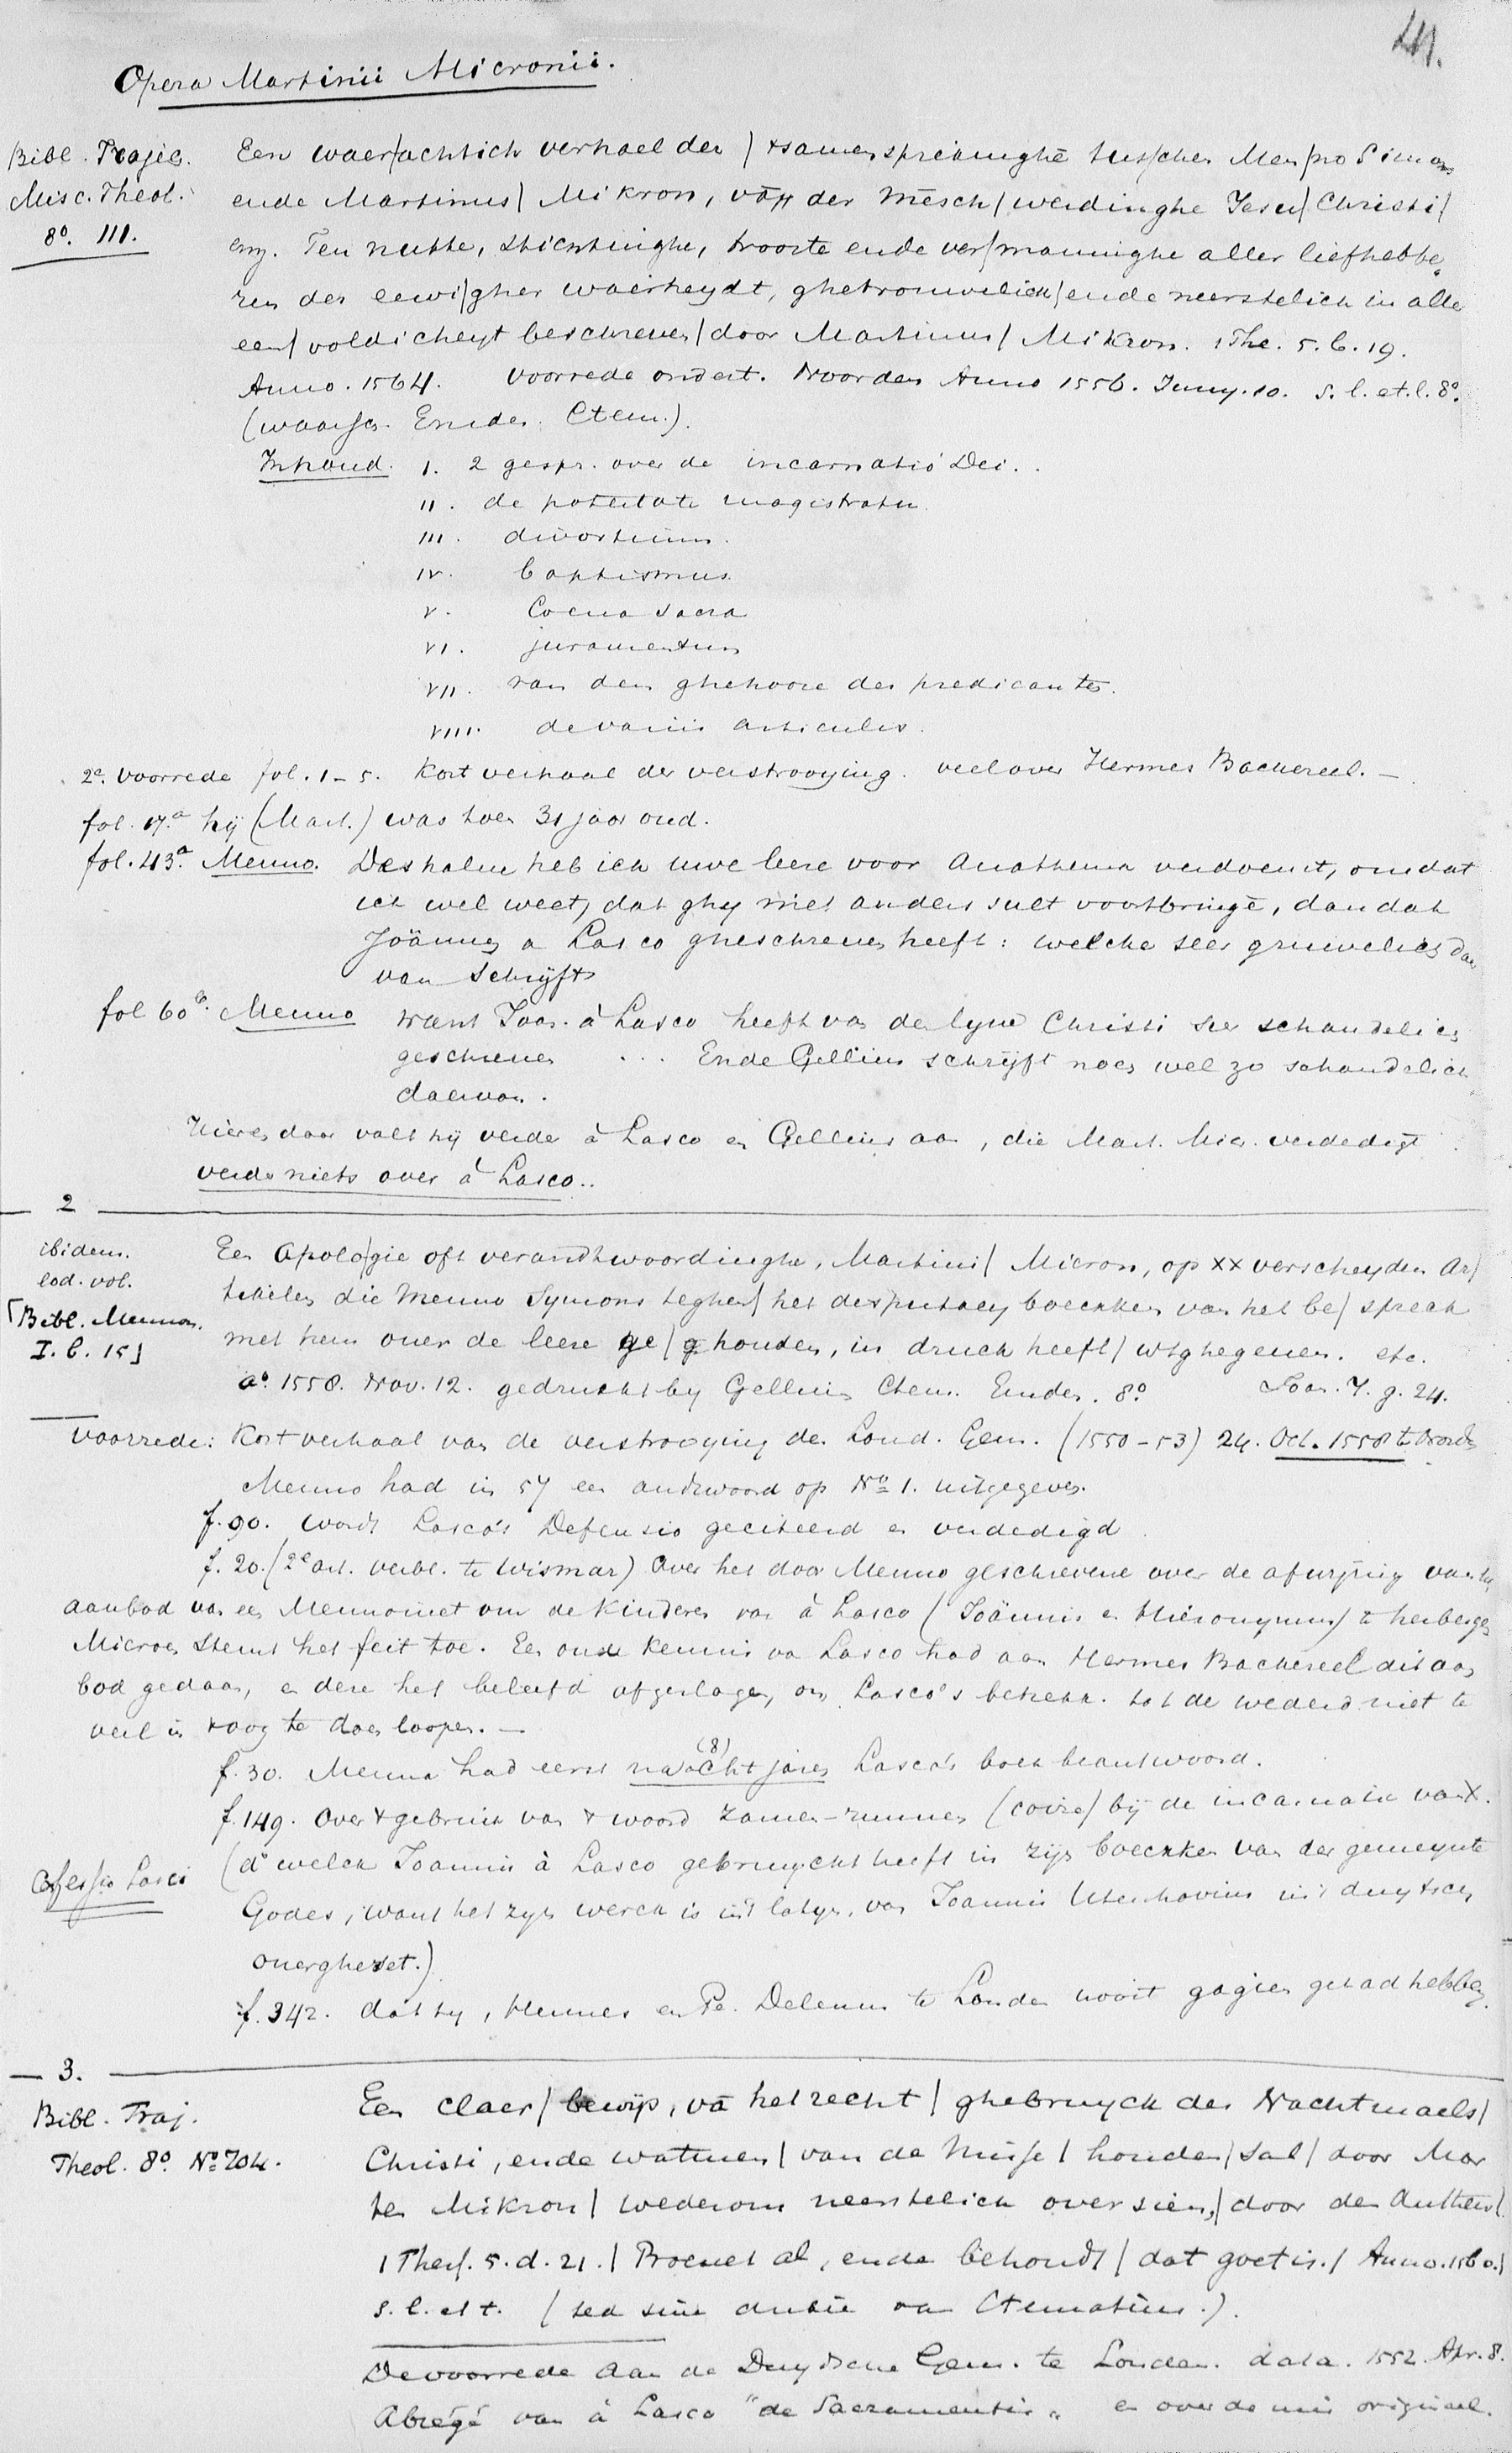 41.
Opera Martinii Micronii.
Bibl. Trajec.
Misc. Theol.
8º. III.
Een waer/achtich verhael der / tsamensprekinghē tusschen Men/no Simons
ende Martinus/ Mikron, van der mēsch/werdinghe Jesu/ Christi/
enz. Ten nutte, stichtinghe, trooste ende ver/maninghe aller liefhebbe,
ren der eewi/gher waerheydt, ghetrouwelick/ende neerstelick in alle
een/voldicheyt beschreven/door Martinus/ Mikron. 1 The. 5. b. 19.
Anno. 1564. Voorrede ondert. Noorden Anno 1556. Juny. 10. S. l. et. t. 8º.
(waarsch. Emden. Ctem.).
Inhoud. I. 2 gespr. over de incarnatio Dei.
II. de potestate magistratu
III. divortium.
IV. baptismus.
V. Coena sacra
VI. juramentum
VII. van den ghehoore der predicantē.
VIII. de variis articulis.
2e. voorrede fol. 1-5. Kort verhaal der verstrooying. veel over Hermes Backereel. —
fol. 17.a hij (Mart.) was toen 31 jaar oud.
fol. 43.a Menno. Deshalue heb ick uwe leere voor Anathema verdoemt, omdat
ick wel weet, dat ghy niet anders sult voortbringē, dan dat
Joännes a Lasco gheschreven heeft: welcke seer gruwelick daer
van schrijft
fol 60b. Menno Want Joan. à Lasco heeft van de lyne Christi seer schandelick
geschreven ... Ende Gellius schrijft noch wel zo schandelick
daervan.
Hier en daar valt hij verder à Lasco en Gellius aan, die Mart. Mic. verdedigt.
verder niets over à Lasco..
2
ibidem.
eod. vol.
[Bibl. Mennon.
I. b. 15]
Een Apolo/gie oft verandtwoordinghe, Martini/ Micron, op XX verscheyden Ar/
tikelen die Menno Symons teghen/ het disputacy boecxken van het be/spreak
met hem ouer de leere ge/ghouden, in druck heeft/ wtghegeuen. etc.
aº. 1558. Nov. 12. gedruckt by Gellius Ctem. Emden. 8º. Joan. 7. g. 24.
Voorrede: Kort verhaal van de verstrooying der Lond. Gem. (1550-53) 24. Oct. 1558 te Norden
Menno had in 57 een andtwoord op Nº 1. uitgegeven.
f. 90. wordt Lasco's Defensio geciteerd en verdedigd.
f. 20. (2e art. verbl. te Wismar) Over het door Menno geschrevene over de afwijzing van het
aanbod van een Mennoniet om de kinderen van à Lasco (Joännis en Hieronymus) te herbergen
Micron stemt het feit toe. Een oude kennis van Lasco had aan Hermes Backereel dit aan
bod gedaan, en deze het beleefd afgeslagen, om Lasco's betrekk. tot de wederd. niet te
veel in t oog te doen loopen. —
f. 30. Menno had eerst na acht (8) jaren Lasco's boek beantwoord.
f. 149. Over t gebruik van t woord Zamen-runnen (coire) bij de incarnatie van X.
Cōfessio Lasci
(d' welck Joannis à Lasco gebruyckt heeft in zijn boecxken van der gemeynte
Godes, want het zyn werck is int latyn, van Joannis Utenhovius int duytsch
ouerghezet.)
f. 342. dat hy, Hermes en Pe. Delenus te Londen nooit gagien gehad hebben.
3.
Bibl. Traj.
Theol. 8º. Nº 704.
Een claer/ bewijs, vā het recht/ ghebruyck des Nachtmaels/
Christi, ende watmen/ van de Misse/ houden/ sal/ door Mar
ten Mikron/ wederom neerstelick oversien,/ door den Autheur/
1 Thess. 5. d. 21./ Proeuet al, ende behoudt/ dat goet is./ Anno. 1560./
S. l. et t. (sed sine dubio van Ctematius.).
De voorrede aan de Duydsche Gem. te Londen. data. 1552. Apr. 8.
Abrégé van à Lasco "de Sacramentis" en over de mis origineel.